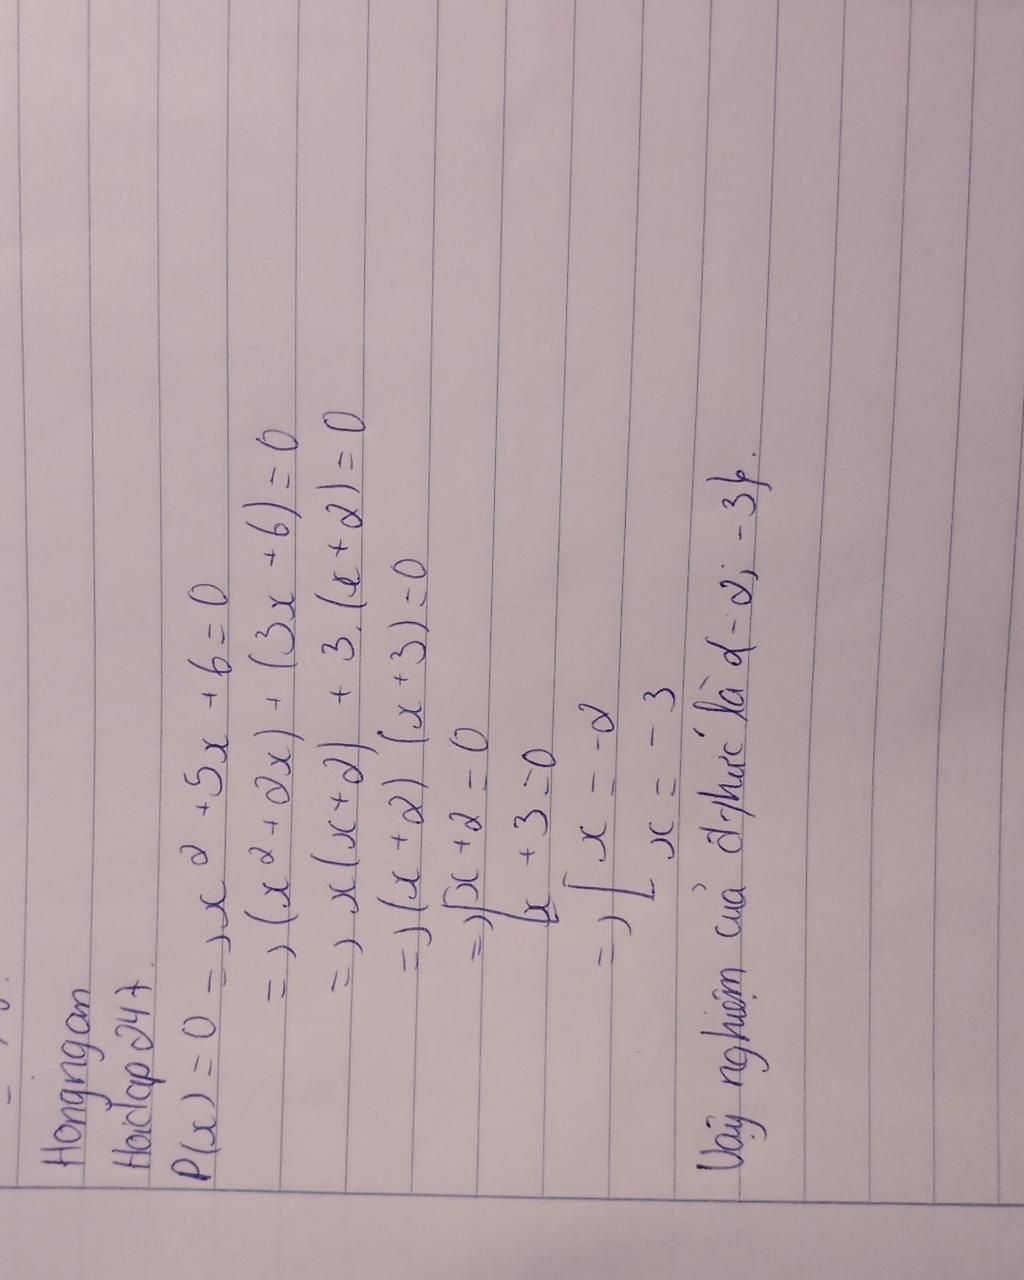 Hongngan
Hoidap247.
P(x) = 0 => x² + 5x + 6 = 0
=> (x² + 2x) + (3x + 6) = 0
=> x(x+2) + 3.(x+2) = 0
=> (x+2) (x+3) = 0
=> [x + 2 = 0
[x + 3 = 0
=> [x = -2
[x = -3
Vậy nghiệm của đ thức là {-2; -3}.